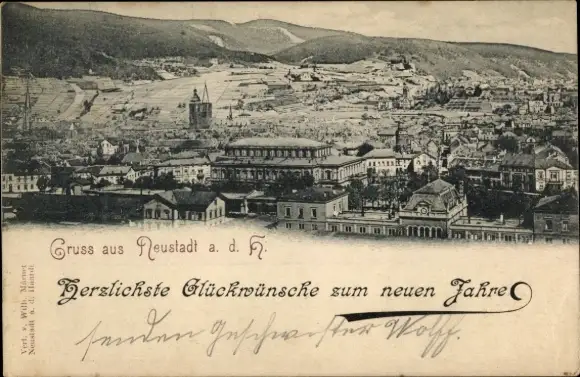 Gruss aus Neustadt a. d. H.
Herzlichste Glückwünsche zum neuen Jahre
senden Geschwister Wolff.
Verl. v. Wilh. Marnet
Neustadt a. d. Haardt